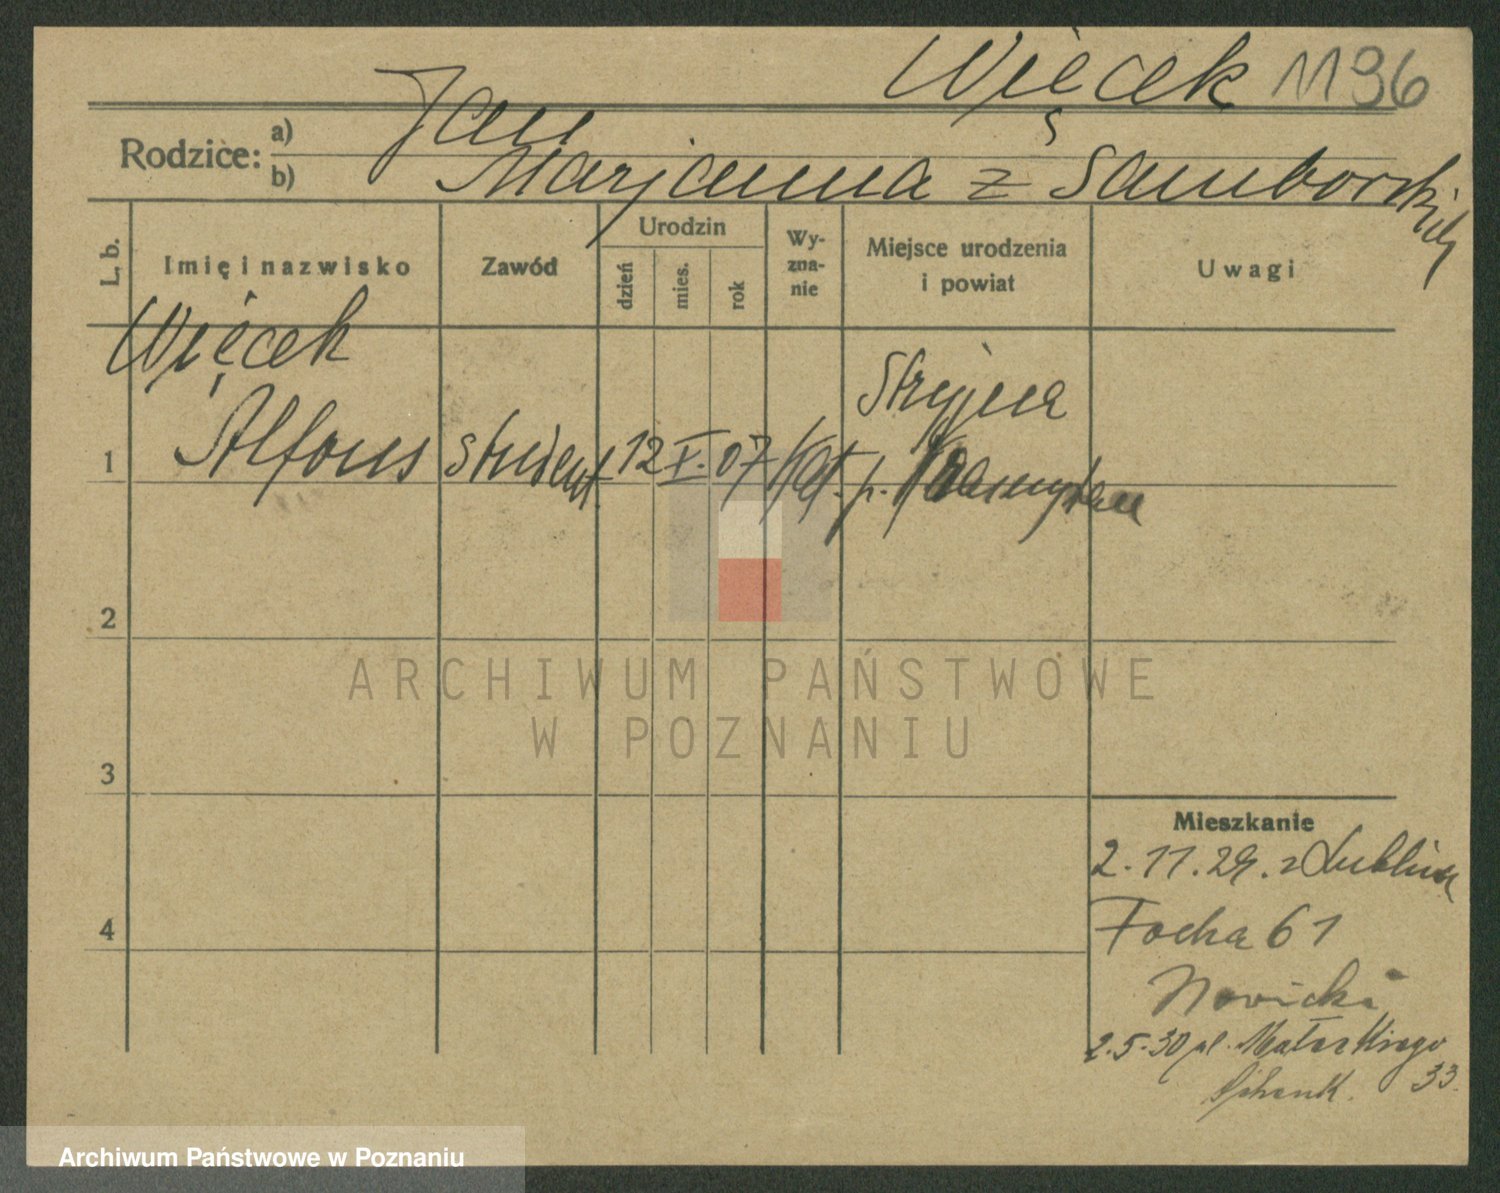 Więcek 1196
Rodzice: a) Jan
b) Marjanna z Samborskich
L. b. Imię i nazwisko Zawód Urodzin dzień mies. rok Wy-zna-nie Miejsce urodzenia i powiat Uwagi
Więcek
1 Alfons student 12 V. 07 Kat. p.
2
3
4
Mieszkanie
2.11.29. z Lublina
Focha 61
Nowicki
2.5.30 pl.
33.
ARCHIWUM PAŃSTWOWE
W POZNANIU
Archiwum Państwowe w Poznaniu